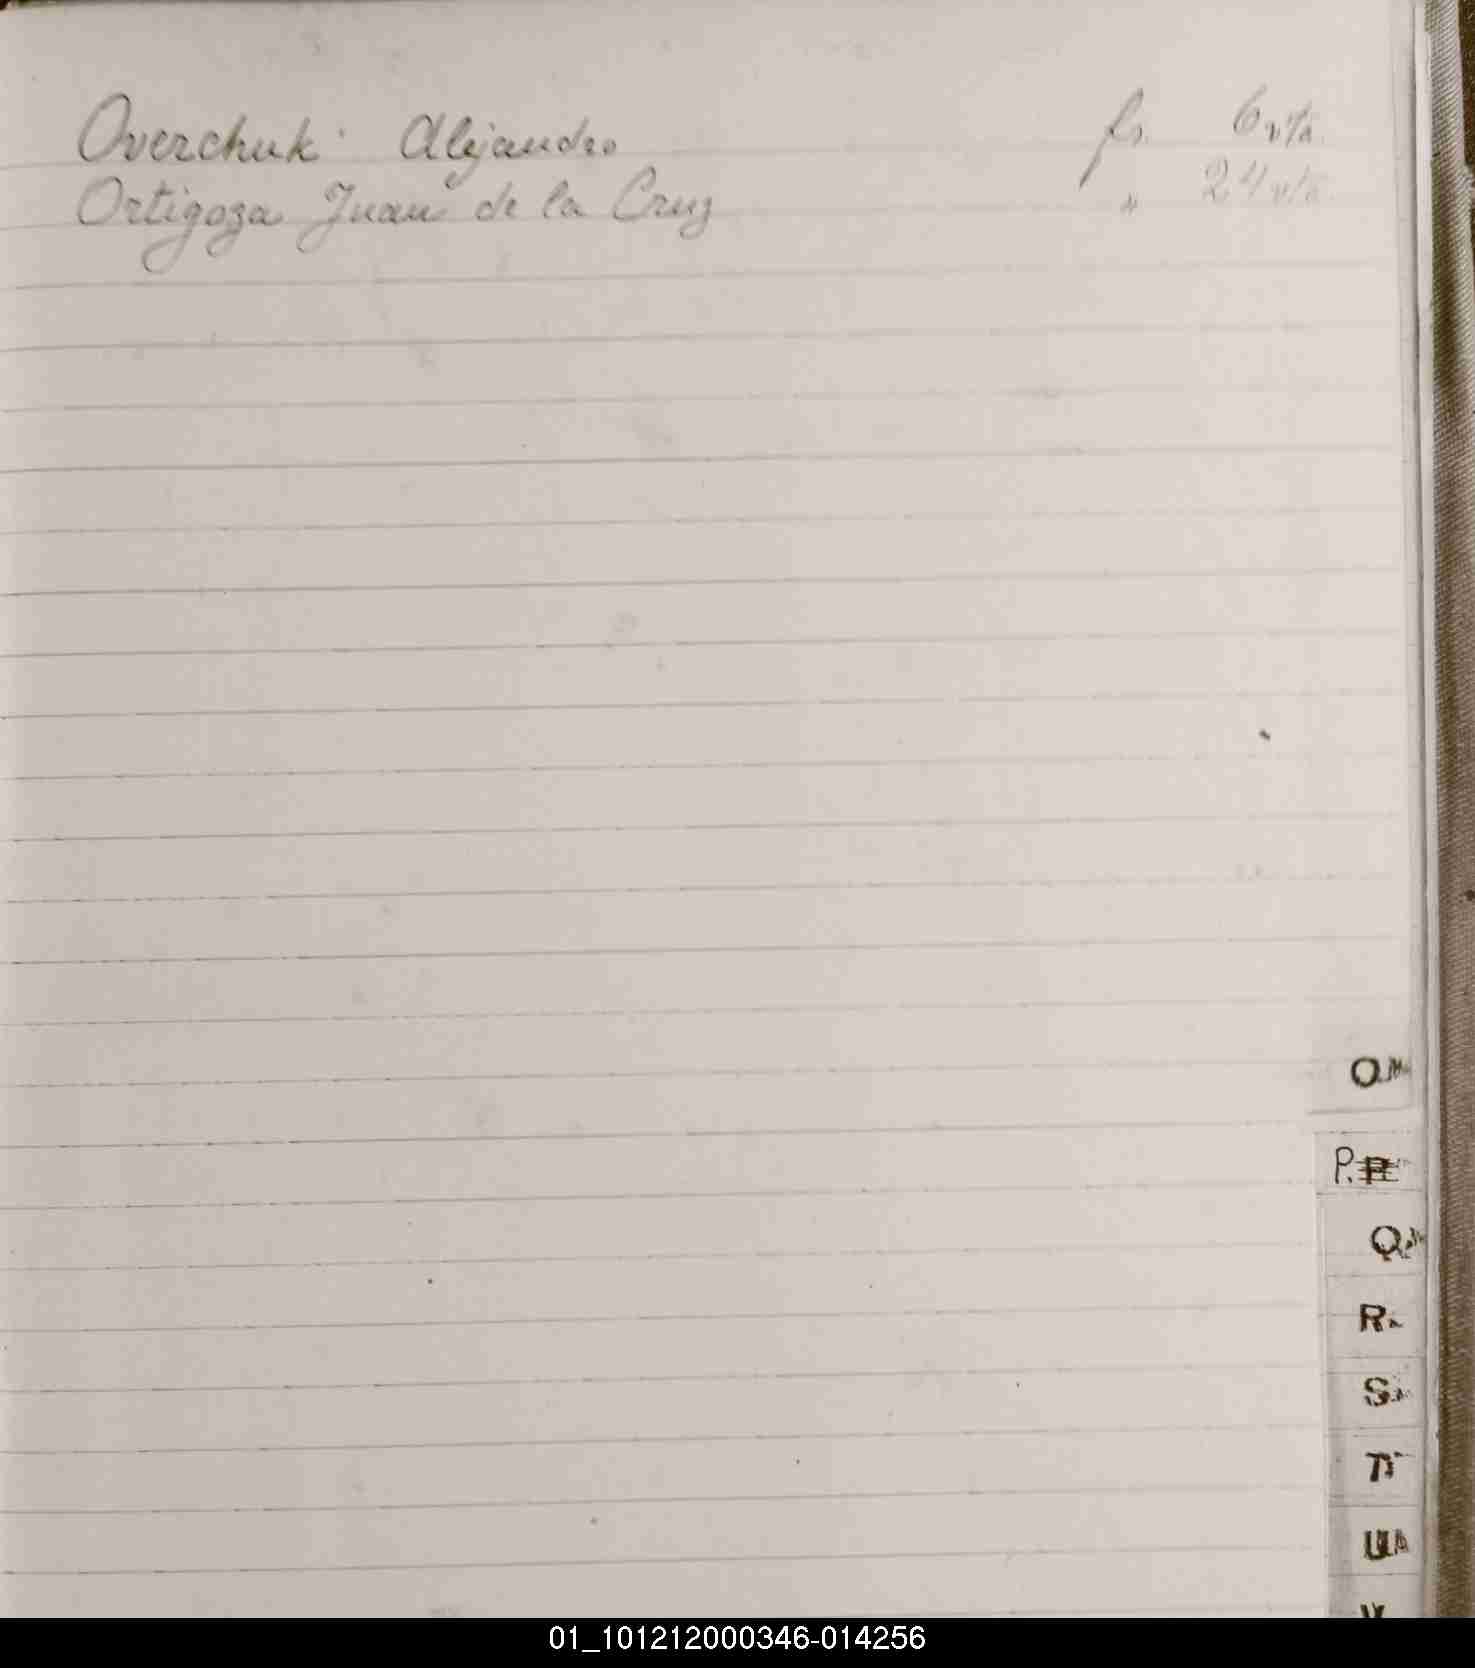 Overchuk Alejandro fs. 6 vta.
Ortigoza Juan de la Cruz " 24 vta.
O
P.
Q
R
S
T
U
V
01_101212000346-014256